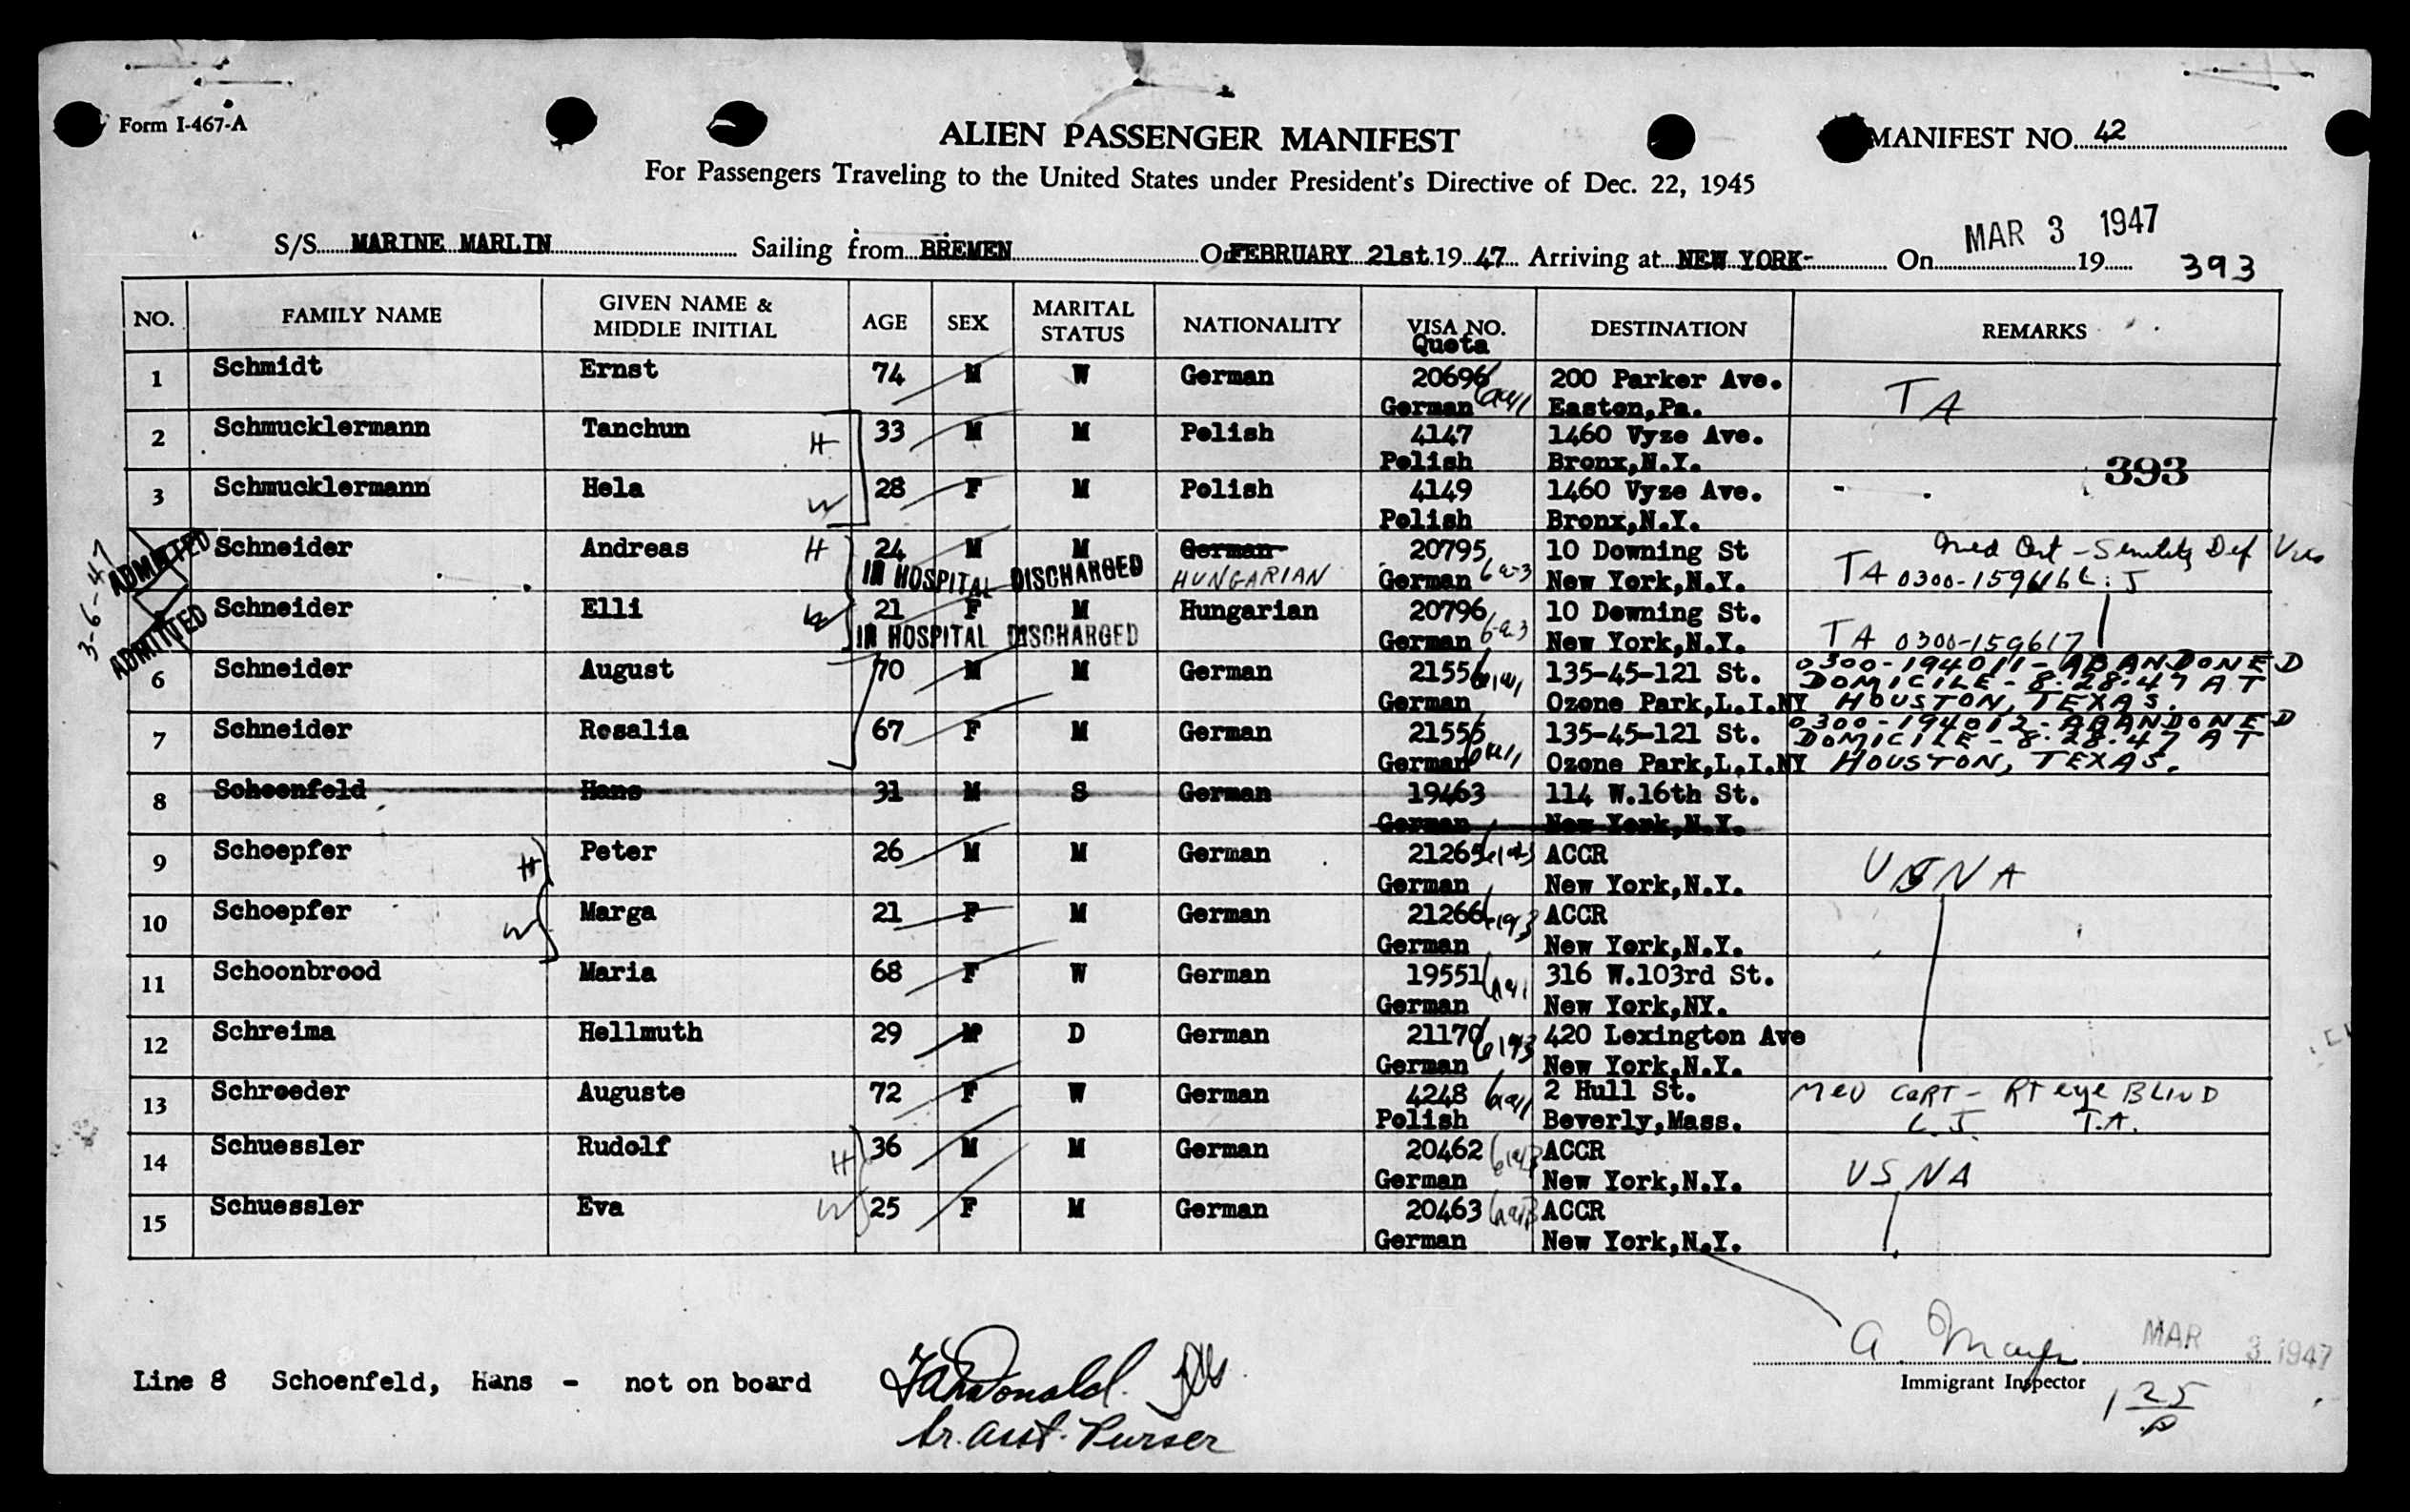 Form I-467-A
ALIEN PASSENGER MANIFEST
MANIFEST NO. 42
For Passengers Traveling to the United States under President's Directive of Dec. 22, 1945
MAR 3 1947
S/S MARINE MARLIN Sailing from BREMEN On FEBRUARY 21st 19 47 Arriving at NEW YORK- On 19 393
NO. FAMILY NAME GIVEN NAME & MIDDLE INITIAL AGE SEX MARITAL STATUS NATIONALITY VISA NO. Quota DESTINATION REMARKS
1 Schmidt Ernst 74 M W German 20696 200 Parker Ave.
German Easton,Pa. TA
2 Schmucklermann Tanchun H 33 M M Polish 4147 1460 Vyse Ave.
Polish Bronx,N.Y.
393
3 Schmucklermann Hela W 28 F M Polish 4149 1460 Vyse Ave.
Polish Bronx,N.Y.
3-6-47 ADMITTED Schneider Andreas H 24 M M German 20795 10 Downing St Med Cert - Senility Def
IN HOSPITAL DISCHARGED HUNGARIAN German New York,N.Y. TA
ADMITTED Schneider Elli W 21 F M Hungarian 20796 10 Downing St.
IN HOSPITAL DISCHARGED German New York,N.Y. TA 0300-159617
6 Schneider August 70 M M German 21554 135-45-121 St. 0300-194011-ABANDONED
DOMICILE - 8-28-47 AT
German Ozone Park,L.I.NY HOUSTON, TEXAS.
7 Schneider Rosalia 67 F M German 21555 135-45-121 St. 0300-194012-ABANDONED
DOMICILE - 8-28-47 AT
German Ozone Park,L.I.NY HOUSTON, TEXAS.
8 Schoenfeld Hans 31 M S German 19463 114 W.16th St.
German New York,N.Y.
9 Schoepfer H Peter 26 M M German 21265 ACCR
German New York,N.Y. USNA
10 Schoepfer W Marga 21 F M German 21266 ACCR
German New York,N.Y.
11 Schoonbrood Maria 68 F W German 19551 316 W.103rd St.
German New York,NY.
12 Schreima Hellmuth 29 M D German 21170 420 Lexington Ave
German New York,N.Y.
13 Schroeder Auguste 72 F W German 4248 2 Hull St. Med CERT - RT eye BLIND
Polish Beverly,Mass. L.J. T.A.
14 Schuessler Rudolf H 36 M M German 20462 ACCR
German New York,N.Y. USNA
15 Schuessler Eva W 25 F M German 20463 ACCR
German New York,N.Y.
MAR 3 1947
Immigrant Inspector
Line 8 Schoenfeld, Hans - not on board
Purser
1 25